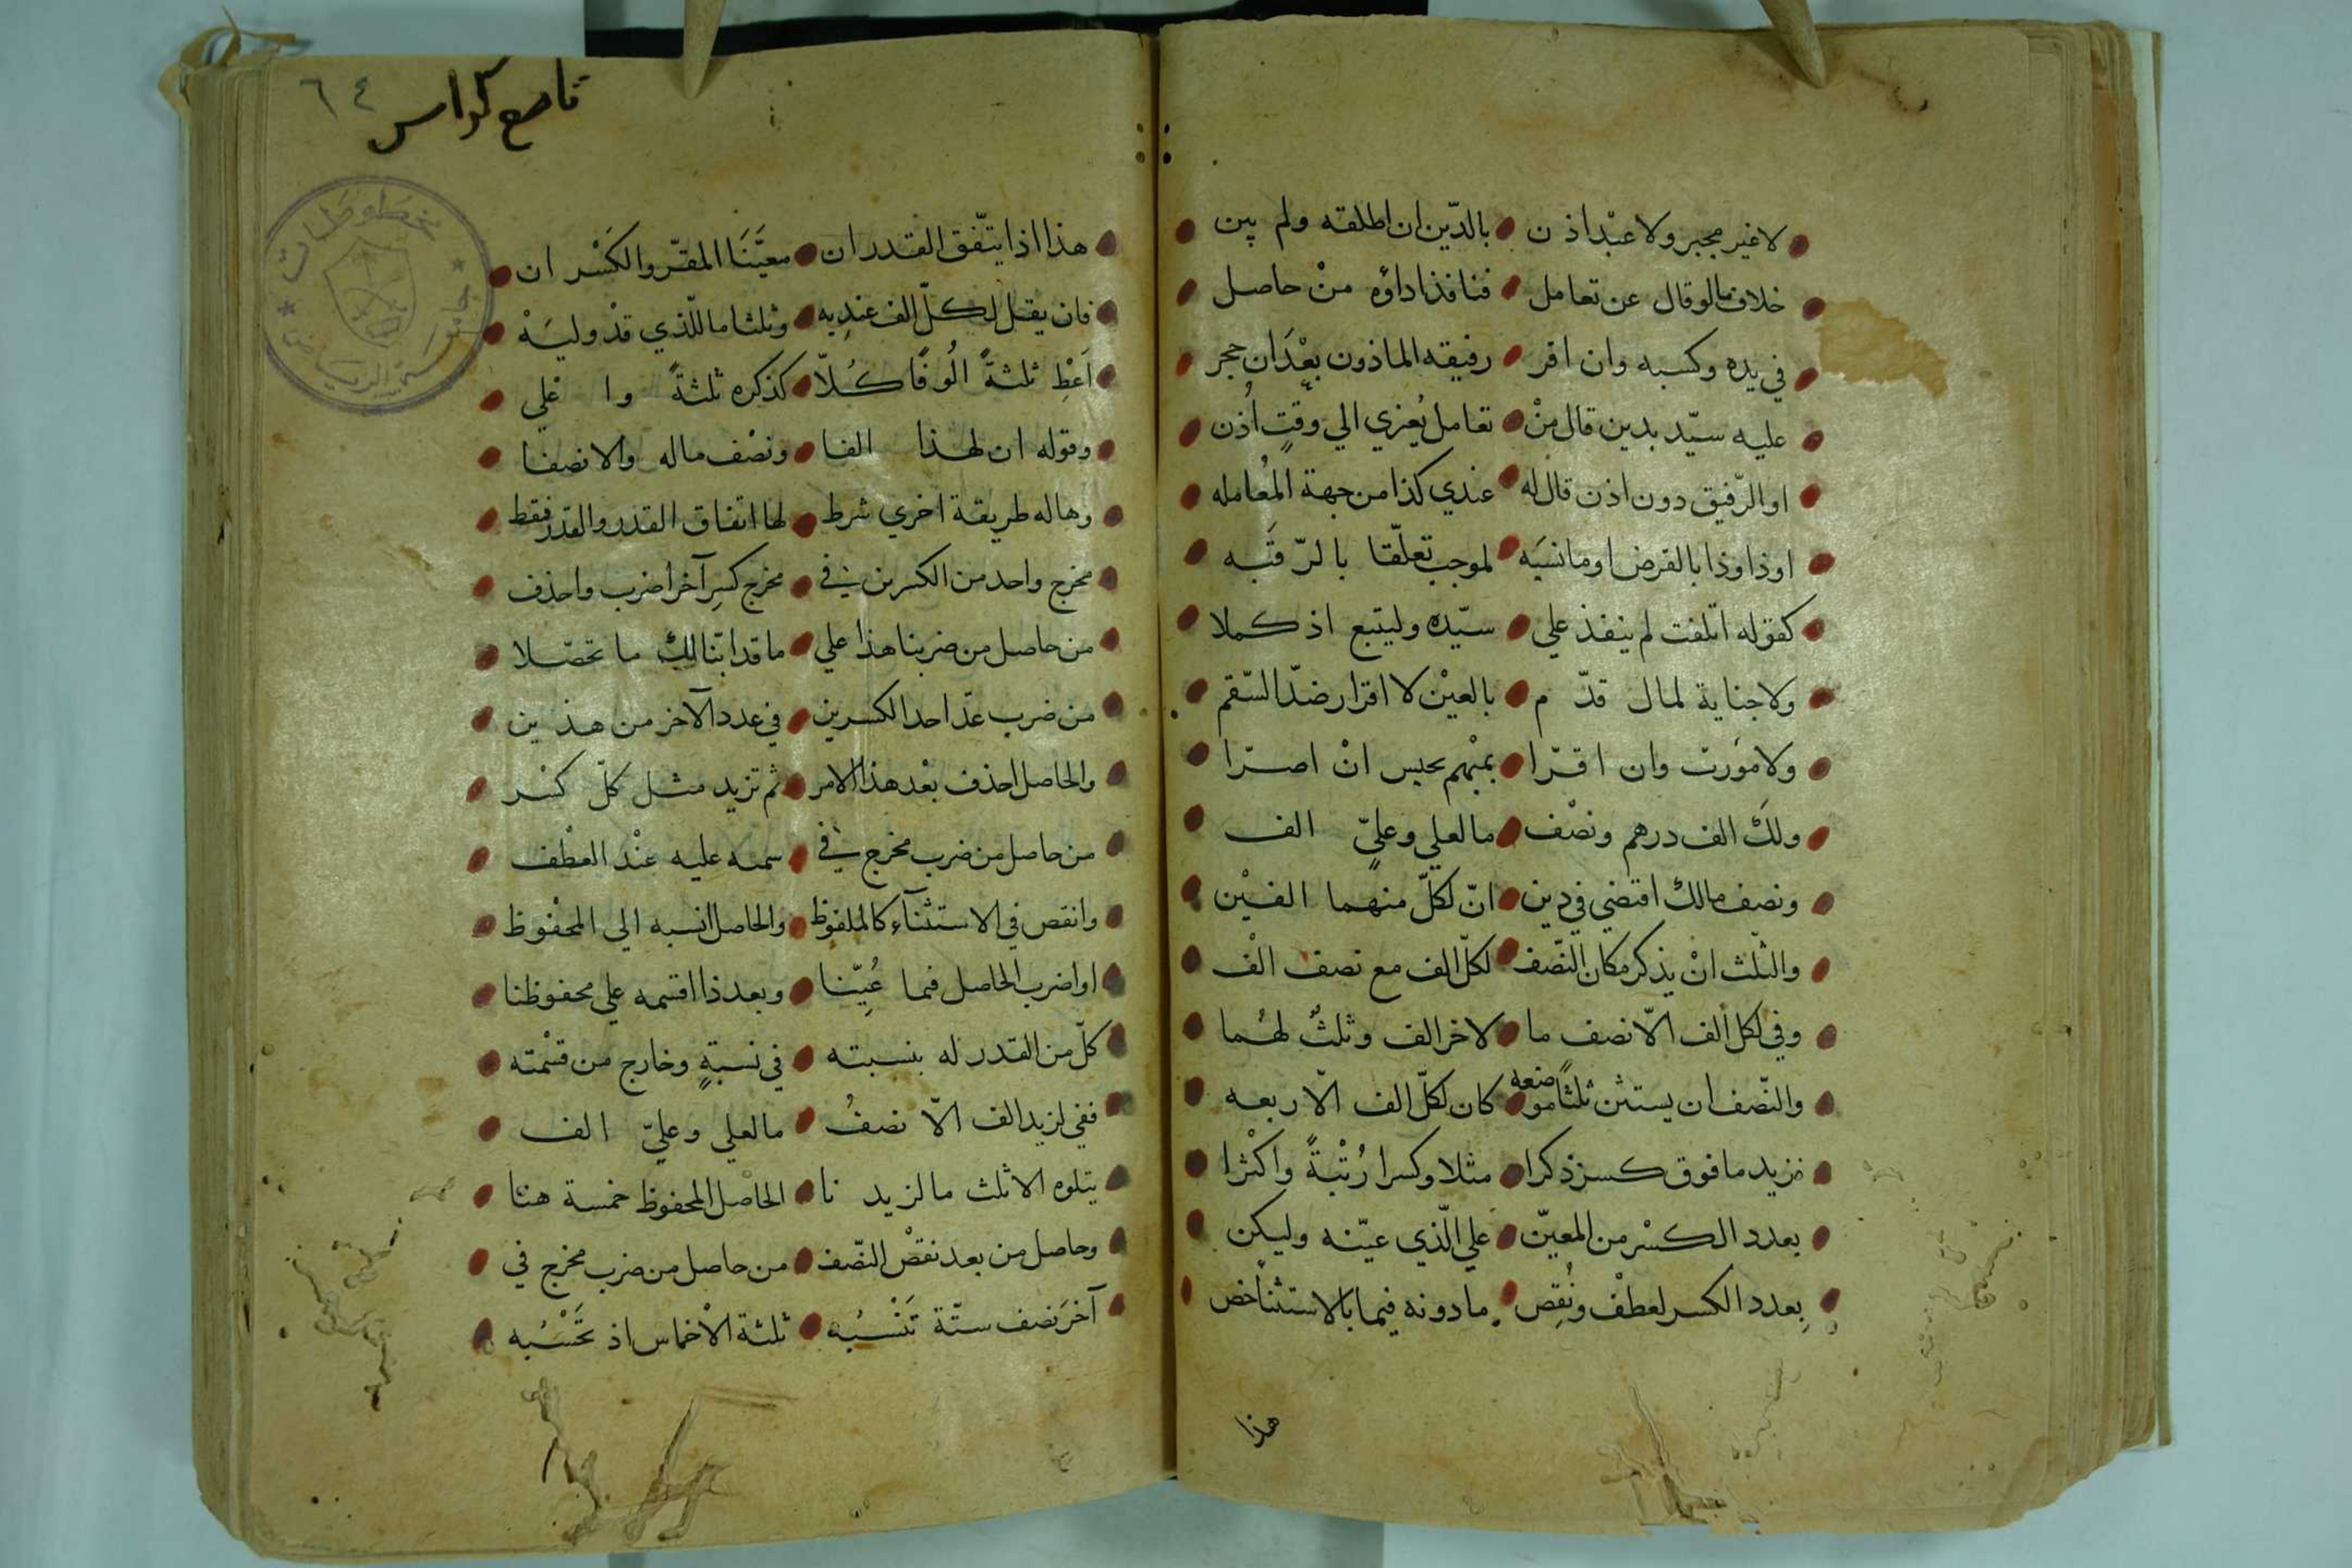 لا غير مجبر ولا عبد اذ ن بالدّين ان اطلقه ولم يبن
خلاف ما لو قال عن تعامل فنافذ اداؤه منْ حاصل
في يده وكسبه وان اقر رفيقه الماذون بعْدَ ان حجر
عليه سيّد بدين قال منْ تعامل يُعزي الي وقتٍ أُذن
او الرّفيق دون اذن قال له عندي كذا من جهة المُعامله
او ذا وذا بالقرض او ما نسبَه لموجب تعلّقا بالرّقَبه
كقوله اتلفت لم ينفذ علي سيّده وليتبع اذ كملا
ولا جناية لمال قدّ م بالعيْن لا اقرار ضدّ السّقم
ولا مُورث وان اقرّا بمبْهم يحبس انْ اصرّا
ولكَ الف درهم ونصْف ما لعلي وعليّ الف
ونصف مالك اقتضي في دين انّ لكلّ منهما الفيْن
والثلث انْ يذكر مكان النّصف لكلّ الف مع نصف الْف
وفي لكل ألف الّا نصف ما لاخر الف وثلثٌ لهُما
والنّصف ان يستثن ثلثًا موضعه كان لكلّ الف الّا ربعه
نزيد ما فوق كسر ذكرا مثلا وكسرا رُتْبةً واكثرا
بعدد الكسْر من المعيّن علي الّذي عيّنه وليكن
بِعدد الكسر لعطفْ ونُقِص ما دونه فيما بالاستثنا خص
هذا
٦٤
تاسع كراس
هذا اذا يتّفق القدر ان معيَّنَا المقرّ والكَسْر ان
فان يقل لكلّ الف عندِيه وثلثا ما للّذي قدْ وليَهْ
اَعْطِ ثلثةً الُوفًا كُلّا كذكره ثلثةً وا علي
وقوله ان لهذا الفا ونصْف ماله والا نصفا
وهاله طريقة اخري شرط لها اتفاق القدر والقدر فقط
مخرج واحد من الكسرين في مخرج كسرٍ آخر اضرب واحذف
من حاصل من ضربنا هذا علي ما قد ابنّا لكَ ما تحصّلا
من ضرب عدّ احد الكسرين في عدد الآخر من هذين
والحاصل احذف بعْد هذا الامر ثم تزيد مثل كلّ كسْر
من حاصل من ضرب مخرج في سمه عليه عنْد العطْف
وانقص في الاستثنآء كالملفوظ والحاصل انسبه الي المحْفوظ
او اضرب الحاصل فيما عُيِّنا وبعد ذا اقسمه علي محفوظنا
كلّ من القدر له بنسبته في نسبةٍ وخارج من قسْمته
ففي لزيد الف الّا نصفُ ما لعلي وعليّ الف
يتلوه الا ثلث ما لزيد نا الحاصل المحفوظ خمسة هنا
وحاصل من بعد نقصْ النّصف من حاصل من ضرب مخرج في
آخرَ نصف ستّة تَنْسُبُه ثلثة الْاخماس اذ تحْسُبُه
مخطوطات
جامعة الرياض